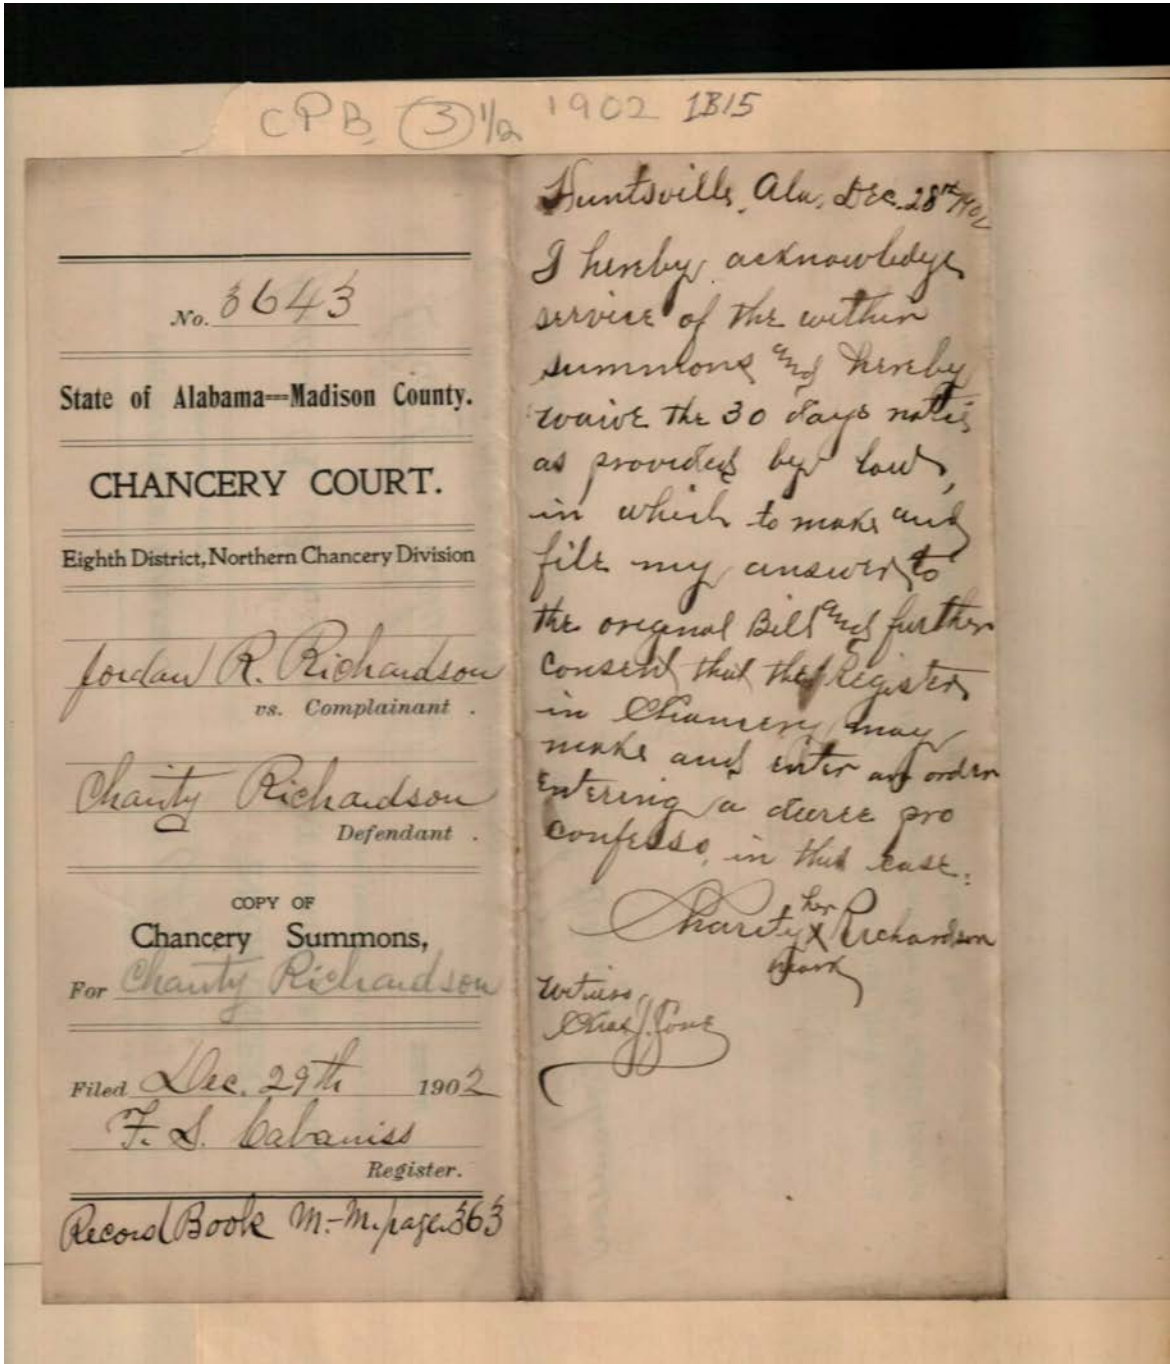 CPB (3) 1/2 1902 1B15
No. 3643
State of Alabama--Madison County.
CHANCERY COURT.
Eighth District, Northern Chancery Division
Jordan R. Richardson
vs. Complainant .
Charity Richardson
Defendant .
COPY OF
Chancery Summons,
For Charity Richardson
Filed Dec. 29th 1902
F. S. Cabaniss
Register.
Record Book M.-M. page 363
Huntsville, Ala, Dec. 28th 1902
I hereby acknowledge
service of the within
summons and hereby
waive the 30 days notice
as provided by law,
in which to make and
file my answer to
the original Bill and further
consent that the Register
in Chancery may
make and enter an order
entering a decree pro
confesso, in this case.
Charity her x mark Richardson
Witness,
Chas J.